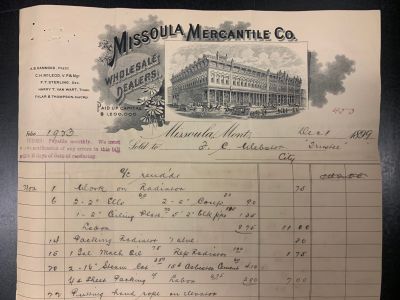 MISSOULA MERCANTILE CO.
A.B. HAMMOND, PREST.
C.H. McLEOD, V.P. & Mgr.
F.T. STERLING, Sec.
HARRY T. VAN WART, Treas.
WHOLESALE
DEALERS.
PAID UP CAPITAL
$1,500,000
453
Folio 1273
Missoula, Mont. Dec 1 1899
TERMS: Payable monthly. We must
be notified of any errors in this bill
within 5 days of date of rendering.
Sold to F. C. Webster "Trustee"
City
a/c rend'd
Nov 1 Work on Radiator 75
6 2-2" Ells 2-2" Coup 90
1-2" Ceiling Plate 5' 2" Blk pipe 1 35
Labor 8 75 11 00
14 Packing Radiator Valve 50
15 1 Gal Mach Oil 75 Rep Radiator 1 75
20 2-14" Steam 15# Asbestos Cement
Sheet Packing Labor 7 00
22 Putting hand rope on elevator